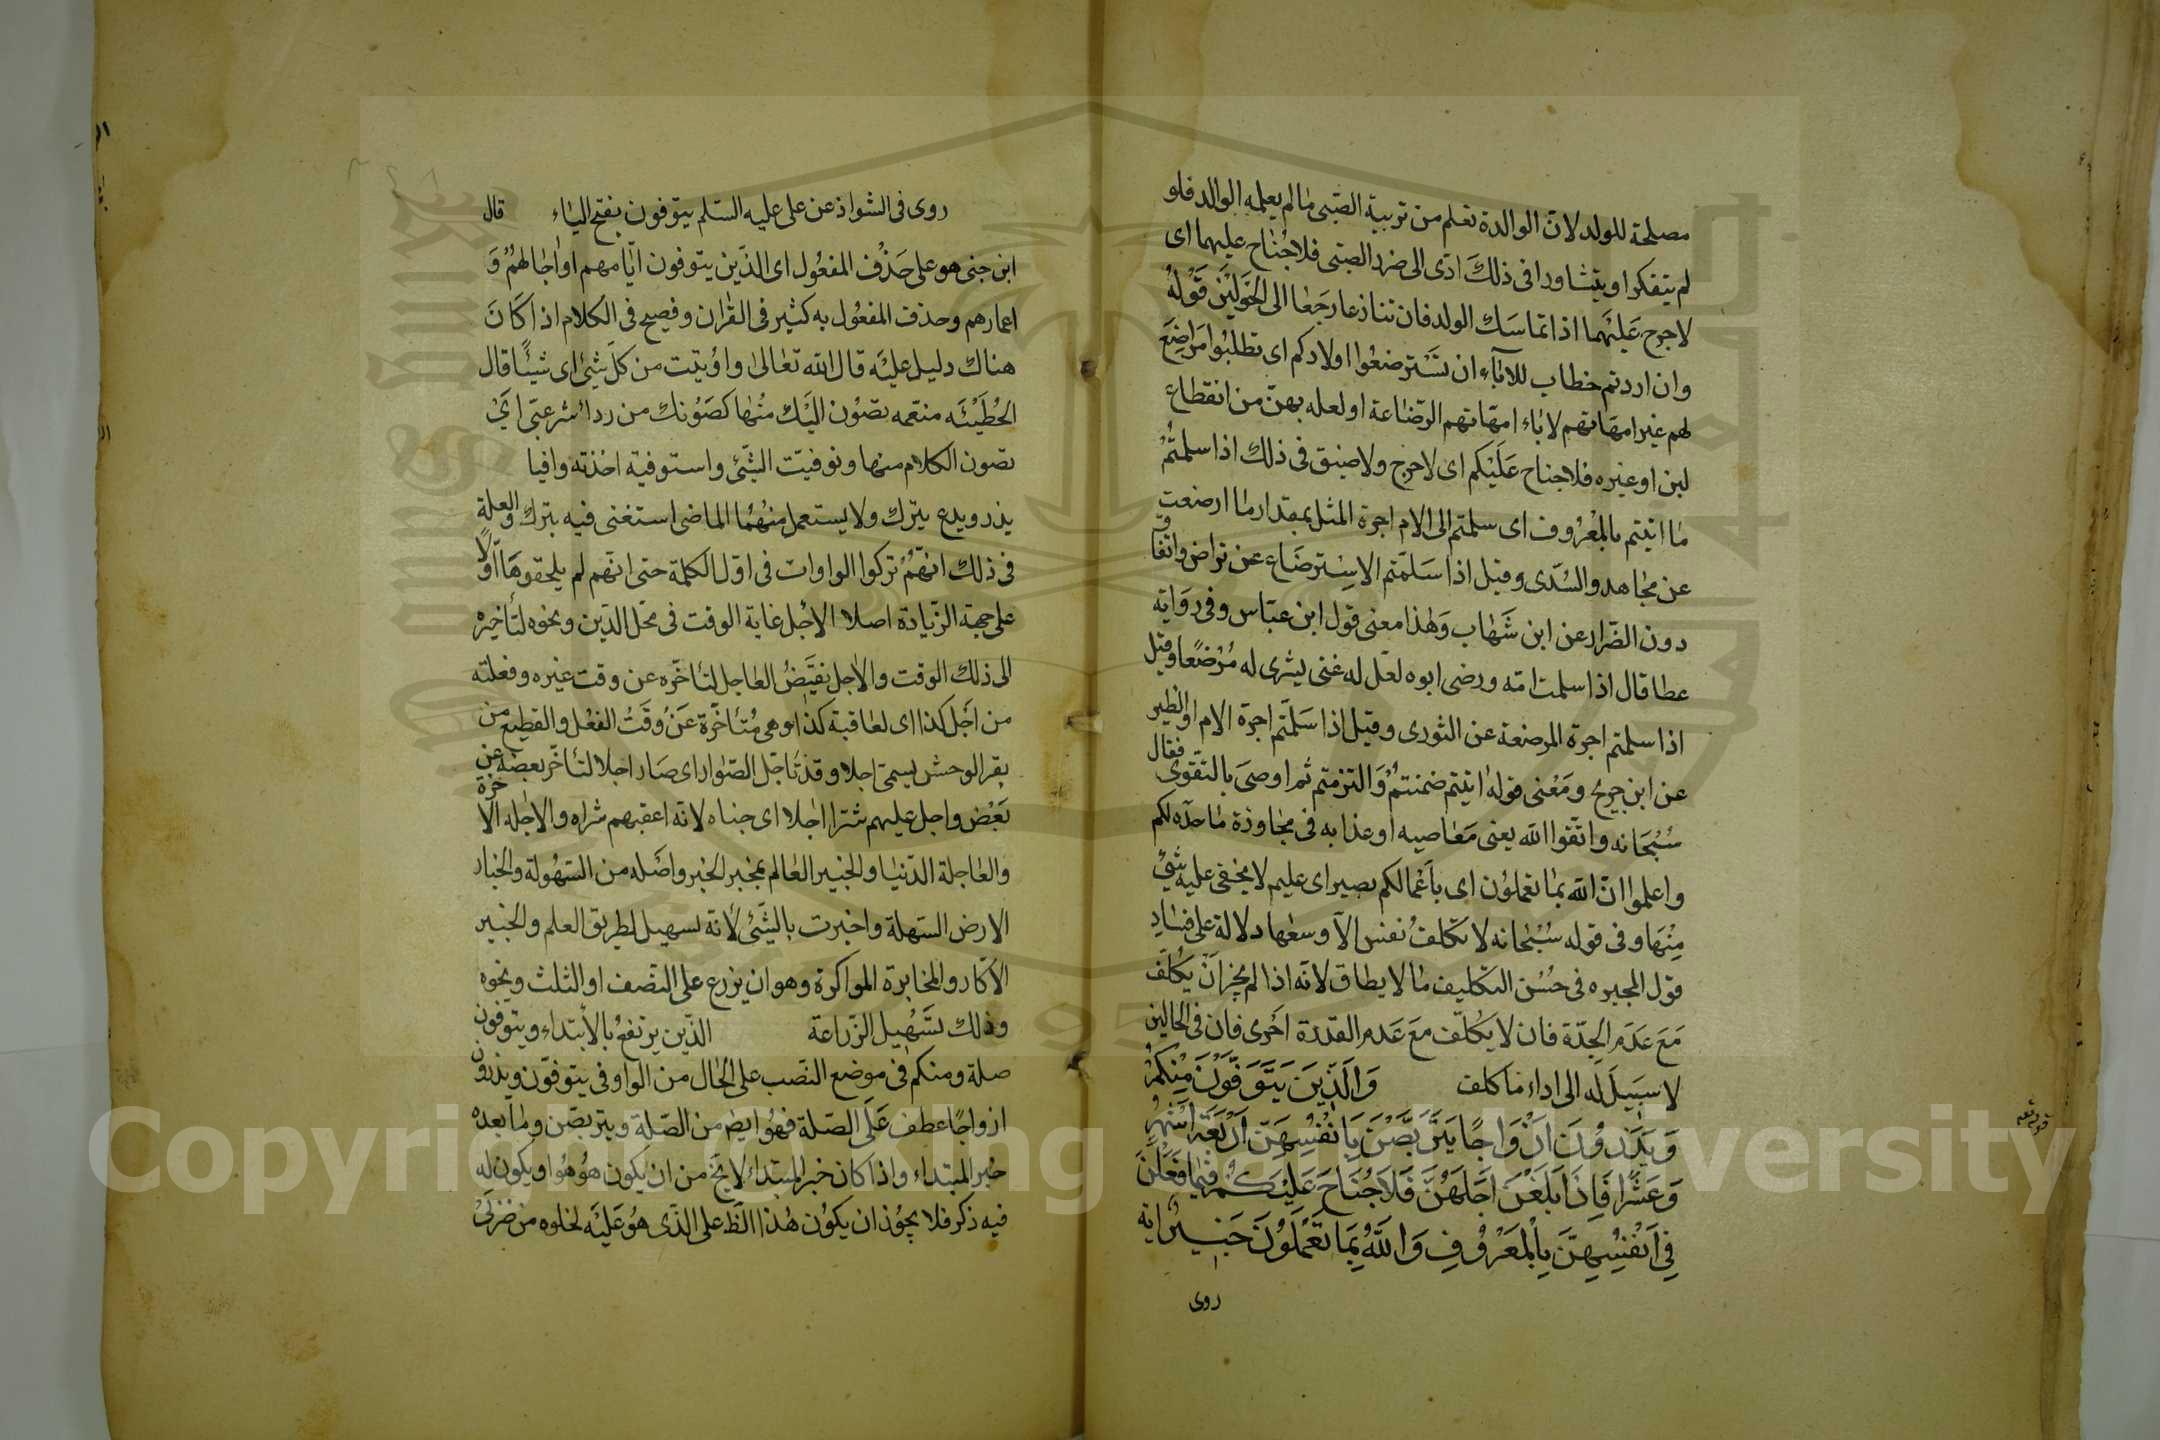 مصلحة للولد لانّ الوالدة تعلم من تربية الصّبى ما لم يعلمه الوالد فلو
لم يتفكرا ويتشاورا فى ذلك ادّى الى ضرر الصّبى فلا جُناح عليهما اى
لا حرج عَليْهما اذا تماسَك الولد فان تنازعا رجَعا الى الحَوليْن قَوْلهُ
وان اردتم خطاب للآباء ان تَسْترضعُوا اولادكم اى تطلبُوا مَراضِعَ
لهم غير امهَاتهم لاباء امهّاتهم الرّضاعة او لعله بهنّ من انقطاع
لبن او غيره فلا جناح عَليْكم اى لا حرج ولا ضيق فى ذلك اذا سلمتُمْ
ما اتيتم بالمعْرُوف اى سلمتم الى الام اجرة المثل بمقدار ما ارضعت
عن مجاهد والسّدى وقيل اذا سَلمّتم الاسِترضَاع عن تراض واتّفاق
دون الضّرار عن ابن شَهاب وَهذا معنى قول ابن عبّاس وفى روَاية
عطا قال اذا سلمت امّه ورضى ابوه لعّل له غنى يشرى له مُرْضعًا وقيل
اذا سلمتم اجرة المرضعة عن الثورى وقيل اذا سَلّمتم اجرة الام او الظير
عن ابن جريح ومَعْنى قولهُ اتيتم ضمنتمْ وَالتزمتم ثم اوصىَ بالتّقوى فقال
سُبْحَانه واتّقوا الله يعنى مَعاصيه او عذابه فى مجاوزة ما حدّه لكم
واعلموا انّ الله بما تعملوُن اى بأعْمالكم بصير اى عليم لا يخفى عليه شئ
مِنْها وفى قوله سُبْحانه لا تكلفُ نفس الاّ وسعها دلالة على فسَادِ
قول المجبره فى حُسْن التكليف ما لا يطاق لانّه اذا لم يجز انْ يكلّف
مَعَ عدَم الجدّة فان لا يكُلّف معَ عَدم القدرة احْرى فان فى الحالين
لا سبَيل لَه الى اداء ما كلف وَالَّذِينَ يَتَوَفَّوْنَ مِنْكُمْ
وَيَذَرُونَ اَزْوَاجًا يَتَرَبَّصْنَ بِاَنْفُسِهِنَّ اَرْبَعَةَ اَشْهُرٍ
وَعَشْرًا فَاِذَا بَلَغْنَ اَجَلَهُنَّ فَلَا جُنَاحَ عَلَيْكُمْ فِيمَا فَعَلْنَ
فِى اَنْفُسِهِنَّ بِالْمَعْرُوفِ وَاللَّهُ بِمَا تَعْمَلُونَ خَبِيرٌ اية
روى
روى فى الشواذ عن على عليه السّلم يتوفون بفتح الياء قال
ابن جنى هو على حَذْف المفعُول اى الذّين يتوفون ايّامهم او اجالهمْ وَ
اعمارهم وحذف المفعُول به كثير فى القران وفصيح فى الكلام اذا كاَنَ
هناك دليل عليْه قال الله تعالى واوُتيت من كلّ شئ اى شيئًا قال
الحُطَيْئَه منعّمه تصوُن اليَك مُنها كصَوْنك من ردائ شرعبّى اىْ
تصون الكلام منها وتوفيّت الشّئ واستوفيته اخذته وافيا
يذر ويدع يترك ولا يستعمل منهُما الماضى استغنى فيه بترك والعلة
فى ذلك انهّمْ تركوا الواوات فى اوّل الكلمة حتى انّهم لم يلحقوهَا اوّلاً
على جهة الزّيادة اصلا الاجْل غاية الوقت فى محّل الدّين ونحوه لتأخيره
الى ذلك الوقت والاجل نقيَضُ العاجل لتأخّره عن وقت غيره وفعلته
من اجَل كذا اى لعاقبة كذا وهى مُتأخّرة عَنْ وقتُ الفعْل والقطيع من
بقر الوحش يسمى اجلا وقد تأجّل الصّوار اى صَار اجلا لتأخّر بعضه عن
بَعْض واجل عليهم شرّا اجلا اى جناه لانه اعقبهم شرا وهو الاجله الاخرة
والعاجلة الدّنيا والخبير العالم بمخبر الخبر واصَله من السّهُولة والخبار
الارض السّهلة واخبرت بالشّئ لأنه تسهيل لطريق العلم والخبير
الاكّار والمخابرة المواكرة وهو ان يزرع على النصّف او الثلث ونحوه
وذلك تسَهْيل الزّراعة الذّين يرتفعُ بالابْتداء ويتوفون
صلة ومنكم فى موضع النصّب على الحال من الواو فى يتوفّون ويذرون
ازواجًا عطف عَلَى الصّلة فهُو ايضا من الصّلة ويتربصّن وما بعده
خبر المبتداء واذا كان خبر المبتداء لا يخ من ان يكون هوُ هوُ او يكون له
فيه ذكر فلا يجوُز ان يكون هُذا الظ على الذّى هوُ عَليْه لخلوه من ضربَىْ
قوله تعه
Copyright © King Saud University
King Saud University
1957